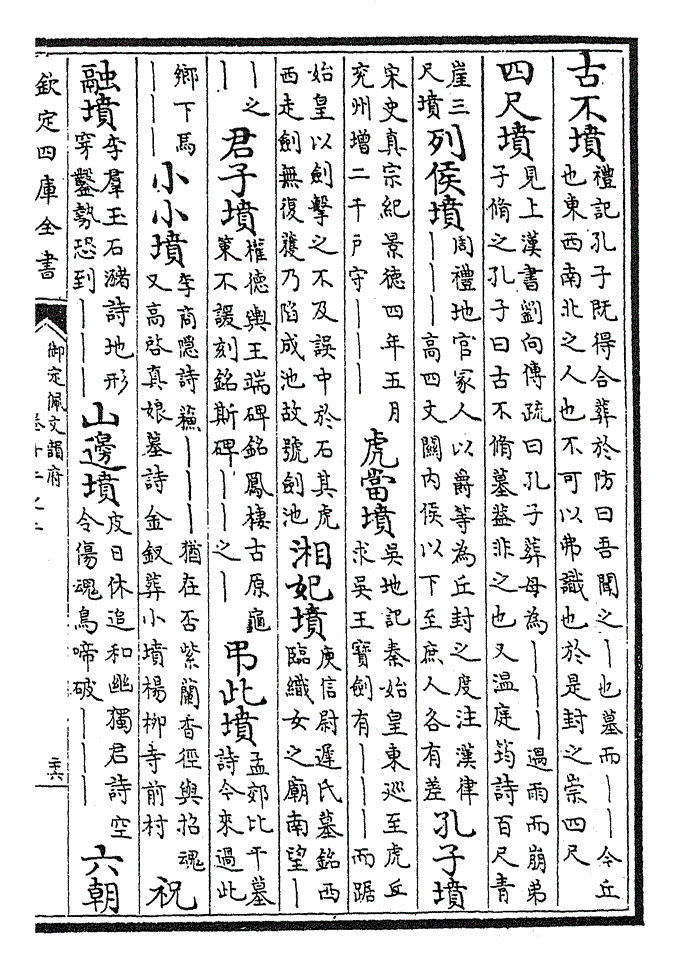 古不墳
禮記孔子既得合葬於防曰吾聞之丨也墓而丨丨今丘
也東西南北之人也不可以弗識也於是封之崇四尺
四尺墳
見上漢書劉向傳疏曰孔子葬母為丨丨丨遇雨而崩弟
子脩之孔子曰古不脩墓葢非之也又溫庭筠詩百尺青
崖三
尺墳
列侯墳
周禮地官冢人以爵等為丘封之度注漢律
丨丨丨高四丈關內侯以下至庶人各有差
孔子墳
宋史真宗紀景德四年五月
兖州增二千戸守丨丨丨
虎當墳
吳地記秦始皇東巡至虎丘
求吳王寶劍有丨丨丨而踞
始皇以劍擊之不及誤中於石其虎
西走劍無復獲乃陷成池故號劍池
湘妃墳
庾信尉遲氏墓銘西
臨織女之廟南望丨
丨之
丨
君子墳
權德輿王端碑銘鳳棲古原龜
筮不諼刻銘斯碑丨丨之丨
弔此墳
孟郊比干墓
詩今來過此
鄉下馬
丨丨丨
小小墳
李商隱詩蘇丨丨丨猶在否紫蘭香徑與招魂
又高啓真娘墓詩金釵葬小墳楊柳寺前村
祝
融墳
李羣玉石瀦詩地形
穿鑿勢恐到丨丨丨
山邊墳
皮日休追和幽獨君詩空
令傷魂鳥啼破丨丨丨
六朝
欽定四庫全書
御定佩文韻府